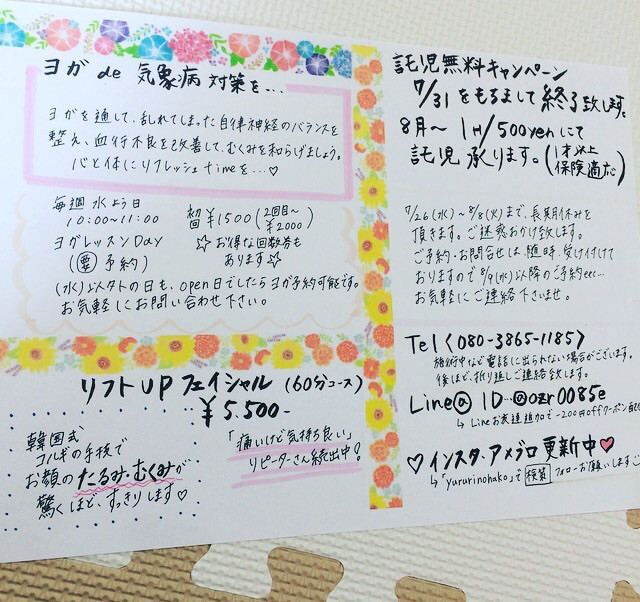 ヨガ de 気象病 対策を…
ヨガを通して、乱れてしまった自律神経のバランスを
整え、血行不良を改善して、むくみを和らげましょう。
心と体にリフレッシュtimeを…♡
毎週 水よう日
10:00~11:00
ヨガレッスンDay
(要 予約)
初回 ¥1500 (2回目~ ¥2000)
☆お得な回数券も
あります☆
(水)以外の日も、open日でしたらヨガ予約可能です。
お気軽にお問い合わせ下さい。
リフトUPフェイシャル (60分コース)
¥5.500-
韓国式
コルギの手技で
お顔のたるみ・むくみが
驚くほど、すっきりします♡
「痛いけど気持ち良い」
リピーターさん続出中!
託児無料キャンペーン
7/31をもちまして終了致します。
8月~ 1H/500yenにて
託児 承ります。(1才以上 保険適応)
7/26(水)~8/8(火)まで、長期休みを
頂きます。ご迷惑おかけ致します。
ご予約・お問合せは、随時、受け付けて
おりますので8/9(水)以降のご予約etc…
お気軽にご連絡下さいませ。
Tel〈080-3865-1185〉
施術中など電話に出られない場合がございます。
後ほど、折り返しご連絡致します。
Line@ ID…@ozr0085e
↳Lineお友達追加で-200円offクーポン
♡インスタ・アメブロ更新中♡
↳「yururinohako」で 検索 フォローお願いします